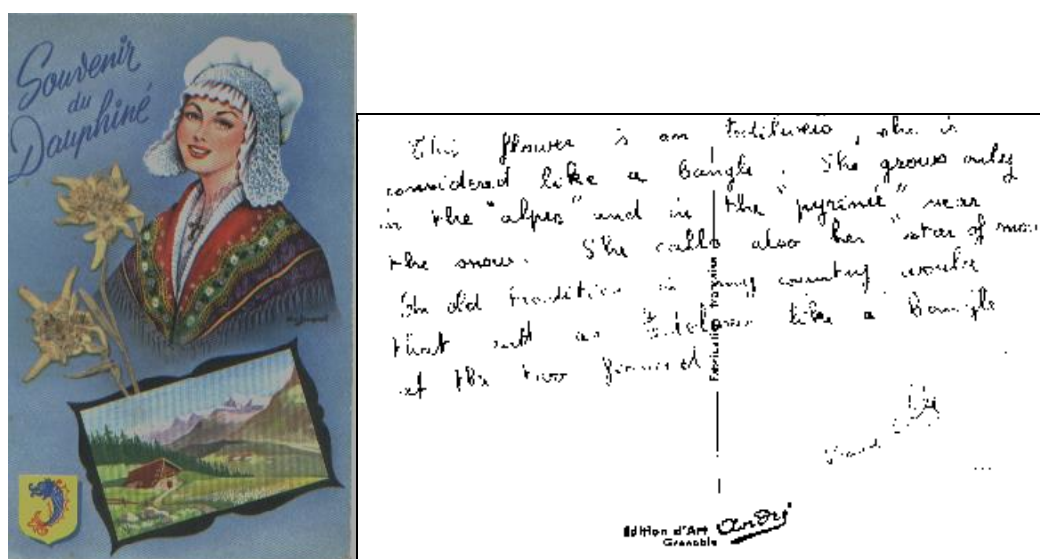 Souvenir
du
Dauphiné
This flower is an , she is
considered like a Bangle. She grows only
in the "alpes" and in the "pyriné" near
the snow. She calls also her "star of
old tradition in my country
that an like a Bangle
at the two
Fabrication française
Édition d'Art André
Grenoble